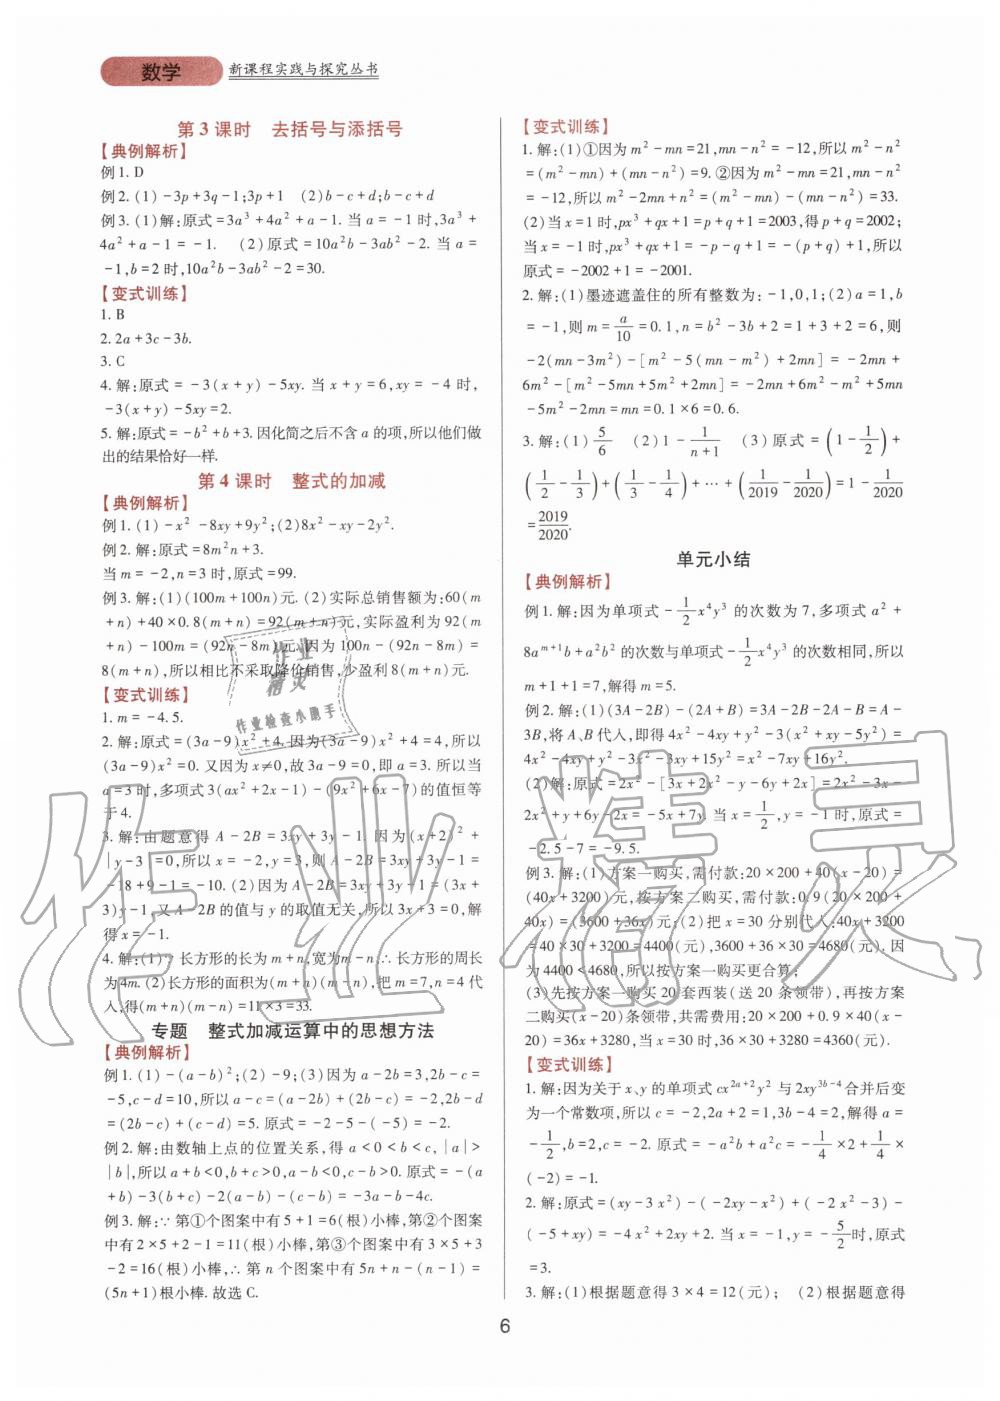 数学 新课程实践与探究丛书
第3课时 去括号与添括号
【典例解析】
例1. D
例2. (1) -3p+3q-1;3p+1 (2)b-c+d;b-c+d
例3. (1)解:原式=3a³+4a²+a-1. 当 a=-1时,3a³+
4a²+a-1=-1. (2)原式=10a²b-3ab²-2. 当 a=
-1,b=2时,10a²b-3ab²-2=30.
【变式训练】
1. B
2. 2a+3c-3b.
3. C
4. 解:原式=-3(x+y)-5xy. 当 x+y=6,xy=-4时,
-3(x+y)-5xy=2.
5. 解:原式=-b²+b+3. 因化简之后不含 a 的项,所以他们做
出的结果恰好一样.
第4课时 整式的加减
【典例解析】
例1. (1)-x²-8xy+9y²;(2)8x²-xy-2y².
例2. 解:原式=8m²n+3.
当 m=-2,n=3时,原式=99.
例3. 解:(1)(100m+100n)元. (2)实际总销售额为:60(m
+n)+40×0.8(m+n)=92(m+n)元,实际盈利为92(m
+n)-100m=(92n-8m)元. 因为100n-(92n-8m)=
8(m+n),所以相比不采取降价销售,少盈利8(m+n)元.
【变式训练】
1. m=-4.5.
2. 解:原式=(3a-9)x²+4. 因为(3a-9)x²+4=4,所以
(3a-9)x²=0. 又因为x≠0,故3a-9=0,即a=3. 所以当
a=3时,多项式3(ax²+2x-1)-(9x²+6x-7)的值恒等
于4.
3. 解:由题意得 A-2B=3xy+3y-1. 因为(x+2)²+
|y-3|=0,所以x=-2,y=3,则 A-2B=3xy+3y-1=
-18+9-1=-10. (2)因为 A-2B=3xy+3y-1=(3x+
3)y-1,又 A-2B的值与y的取值无关,所以3x+3=0,解
得x=-1.
4. 解:(1)∵长方形的长为m+n,宽为m-n,∴长方形的周长
为4m. (2)长方形的面积为(m+n)(m-n),把m=7,n=4代
入,得(m+n)(m-n)=11×3=33.
专题 整式加减运算中的思想方法
【典例解析】
例1. (1)-(a-b)²;(2)-9;(3)因为 a-2b=3,2b-c=
-5,c-d=10,所以 a-c=(a-2b)+(2b-c)=-2,2b-d
=(2b-c)+(c-d)=5. 原式=-2-5-(-5)=-2.
例2. 解:由数轴上点的位置关系,得 a<0<b<c, |a|>
|b|,所以 a+b<0,b+c>0,a-b<0,c-b>0. 原式=-(a
+b)-3(b+c)-2(a-b)-(c-b)=-3a-b-4c.
例3. 解:∵第①个图案中有5+1=6(根)小棒,第②个图案
中有2×5+2-1=11(根)小棒,第③个图案中有3×5+3
-2=16(根)小棒,∴第n个图案中有5n+n-(n-1)=
(5n+1)根小棒. 故选C.
【变式训练】
1. 解:(1)①因为m²-mn=21,mn-n²=-12,所以m²-n²
=(m²-mn)+(mn-n²)=9. ②因为m²-mn=21,mn-n²
=-12,所以m²-2mn+n²=(m²-mn)-(mn-n²)=33.
(2)当x=1时,px³+qx+1=p+q+1=2003,得p+q=2002;
当x=-1时,px³+qx+1=-p-q+1=-(p+q)+1,所以
原式=-2002+1=-2001.
2. 解:(1)墨迹遮盖住的所有整数为:-1,0,1;(2)a=1,b
=-1,则m=a/10=0.1,n=b²-3b+2=1+3+2=6,则
-2(mn-3m²)-[m²-5(mn-m²)+2mn]=-2mn+
6m²-[m²-5mn+5m²+2mn]=-2mn+6m²-m²+5mn
-5m²-2mn=mn=0.1×6=0.6.
3. 解:(1)5/6 (2)1-1/(n+1) (3)原式=(1-1/2)+
(1/2-1/3)+(1/3-1/4)+…+(1/2019-1/2020)=1-1/2020
=2019/2020.
单元小结
【典例解析】
例1. 解:因为单项式-1/2x⁴y³的次数为7,多项式a²+
8a^{m+1}b+a²b²的次数与单项式-1/2x⁴y³的次数相同,所以
m+1+1=7,解得m=5.
例2. 解:(1)(3A-2B)-(2A+B)=3A-2B-2A-B=A-
3B,将A、B代入,即得4x²-4xy+y²-3(x²+xy-5y²)=
4x²-4xy+y²-3x²-3xy+15y²=x²-7xy+16y².
(2)解:原式=2x²-[3x+2x²-y-6y+2x]=2x²-3x-
2x²+y+6y-2x=-5x+7y. 当x=1/2,y=-1时,原式=
-2.5-7=-9.5.
例3. 解:(1)方案一购买,需付款:20×200+40(x-20)=
(40x+3200)元,按方案二购买,需付款:0.9(20×200+
40x)=(3600+36x)元;(2)把x=30分别代入:40x+3200
=40×30+3200=4400(元),3600+36×30=4680(元). 因
为4400<4680,所以按方案一购买更合算;
(3)先按方案一购买20套西装(送20条领带),再按方案
二购买(x-20)条领带,共需费用:20×200+0.9×40(x-
20)=36x+3280,当x=30时,36×30+3280=4360(元).
【变式训练】
1. 解:因为关于x、y的单项式cx^{2a+2}y²与2xy^{3b-4}合并后变
为一个常数项,所以c=-2,2a+2=1,3b-4=2,解得a=
-1/2,b=2,c=-2. 原式=-a²b+a²c=-1/4×2+1/4×
(-2)=-1.
2. 解:原式=(xy-3x²)-(-2xy-x²)+(-2x²-3)-
(-5+xy)=-4x²+2xy+2. 当x=-1,y=-5/2时,原式
=3.
3. 解:(1)根据题意得3×4=12(元); (2)根据题意得
6
作业
精灵
作业检查小助手
作业精灵